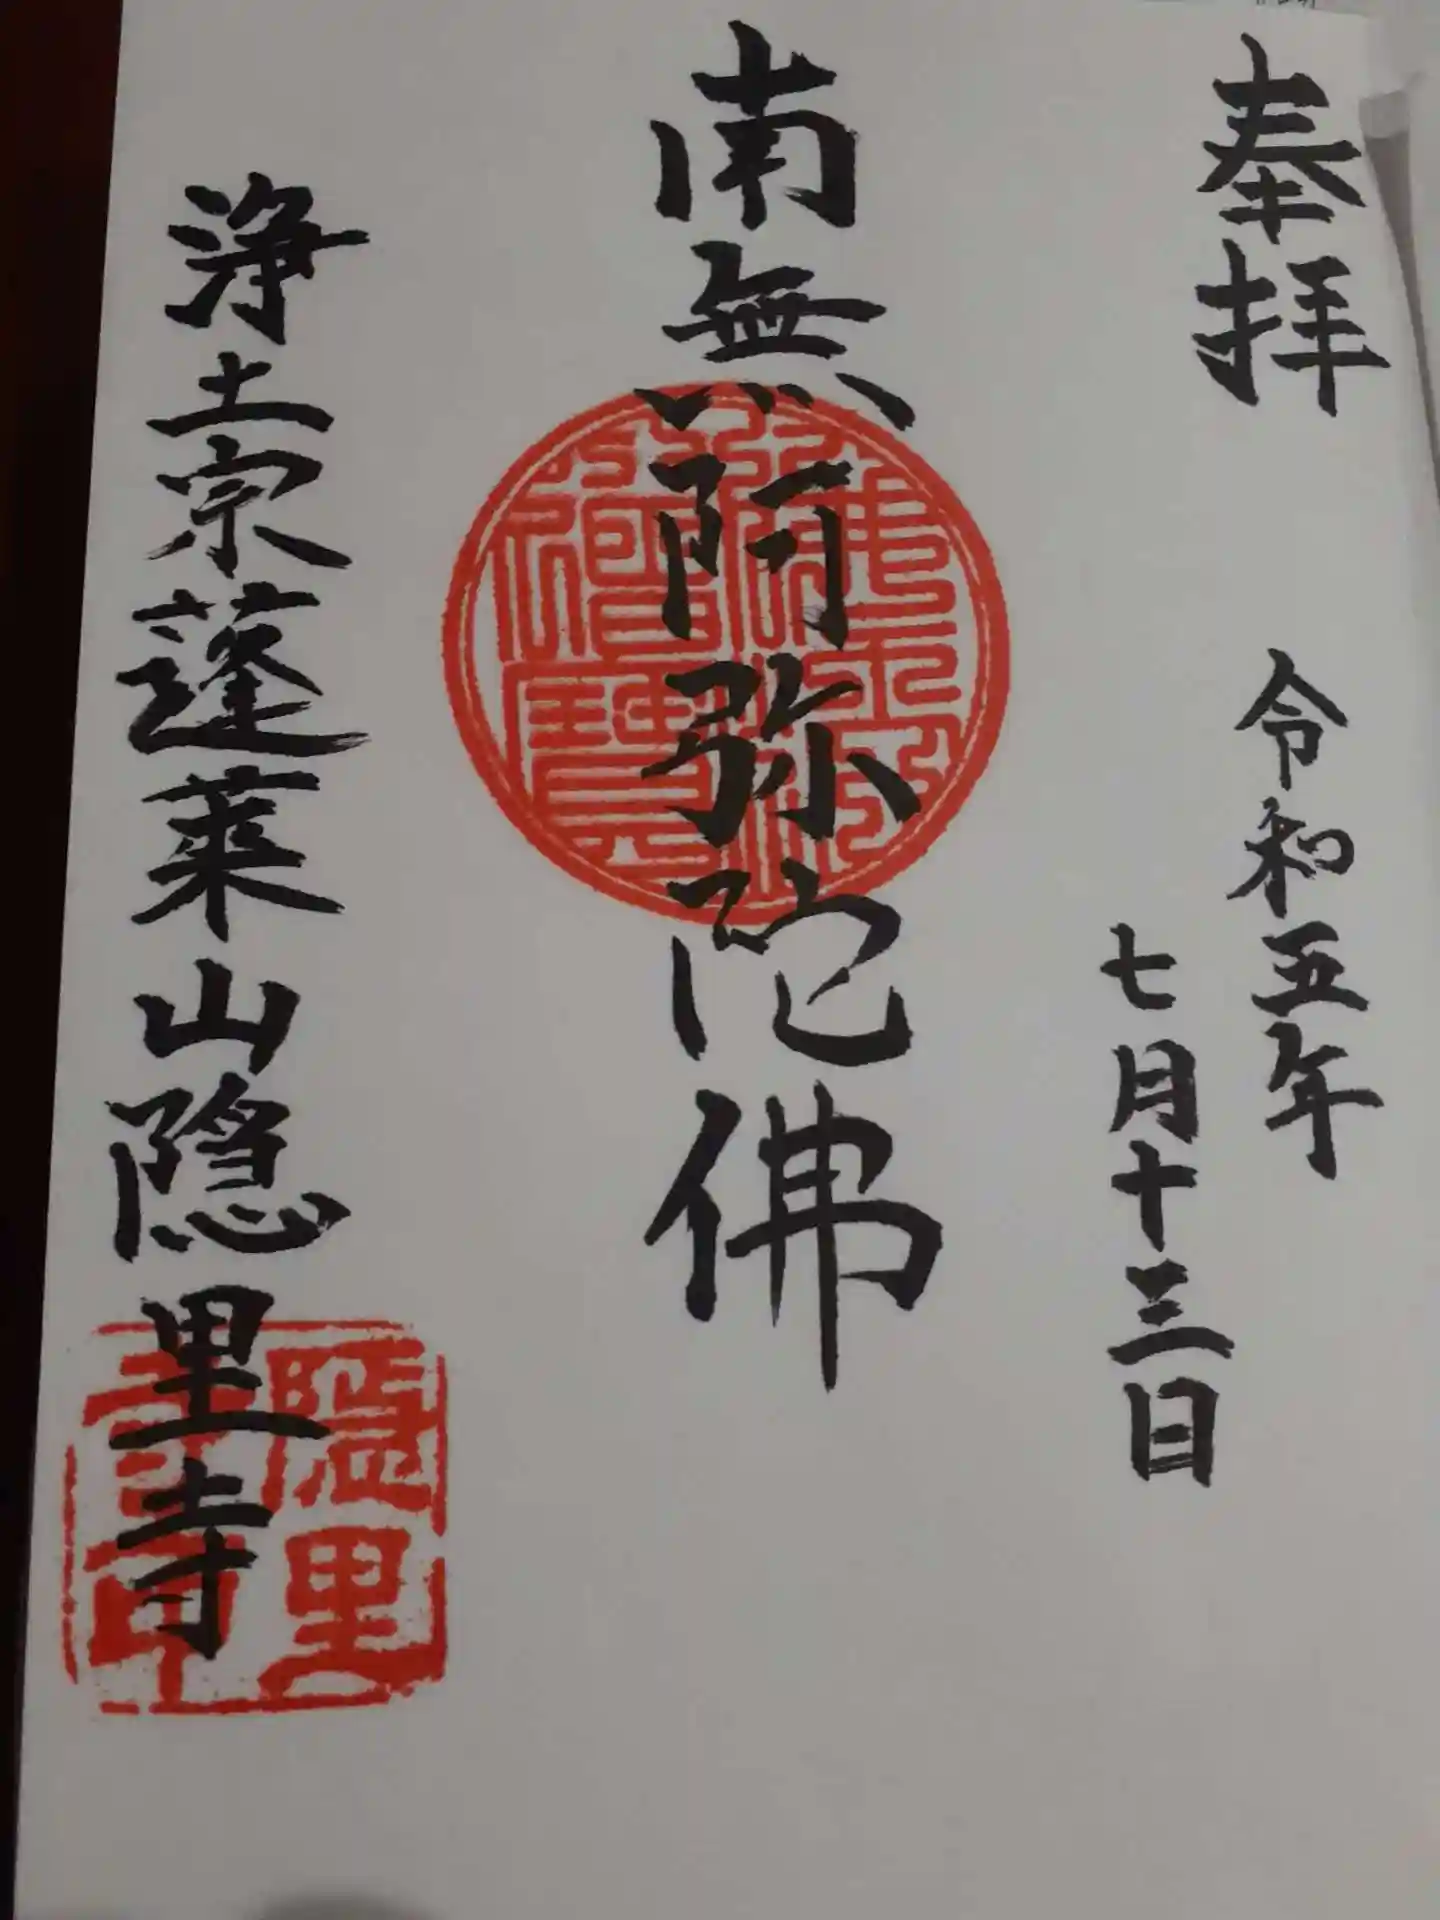 奉拝
令和五年
七月十三日
南無阿弥陀佛
浄土宗蓬莱山隠里寺
隠里
寺印